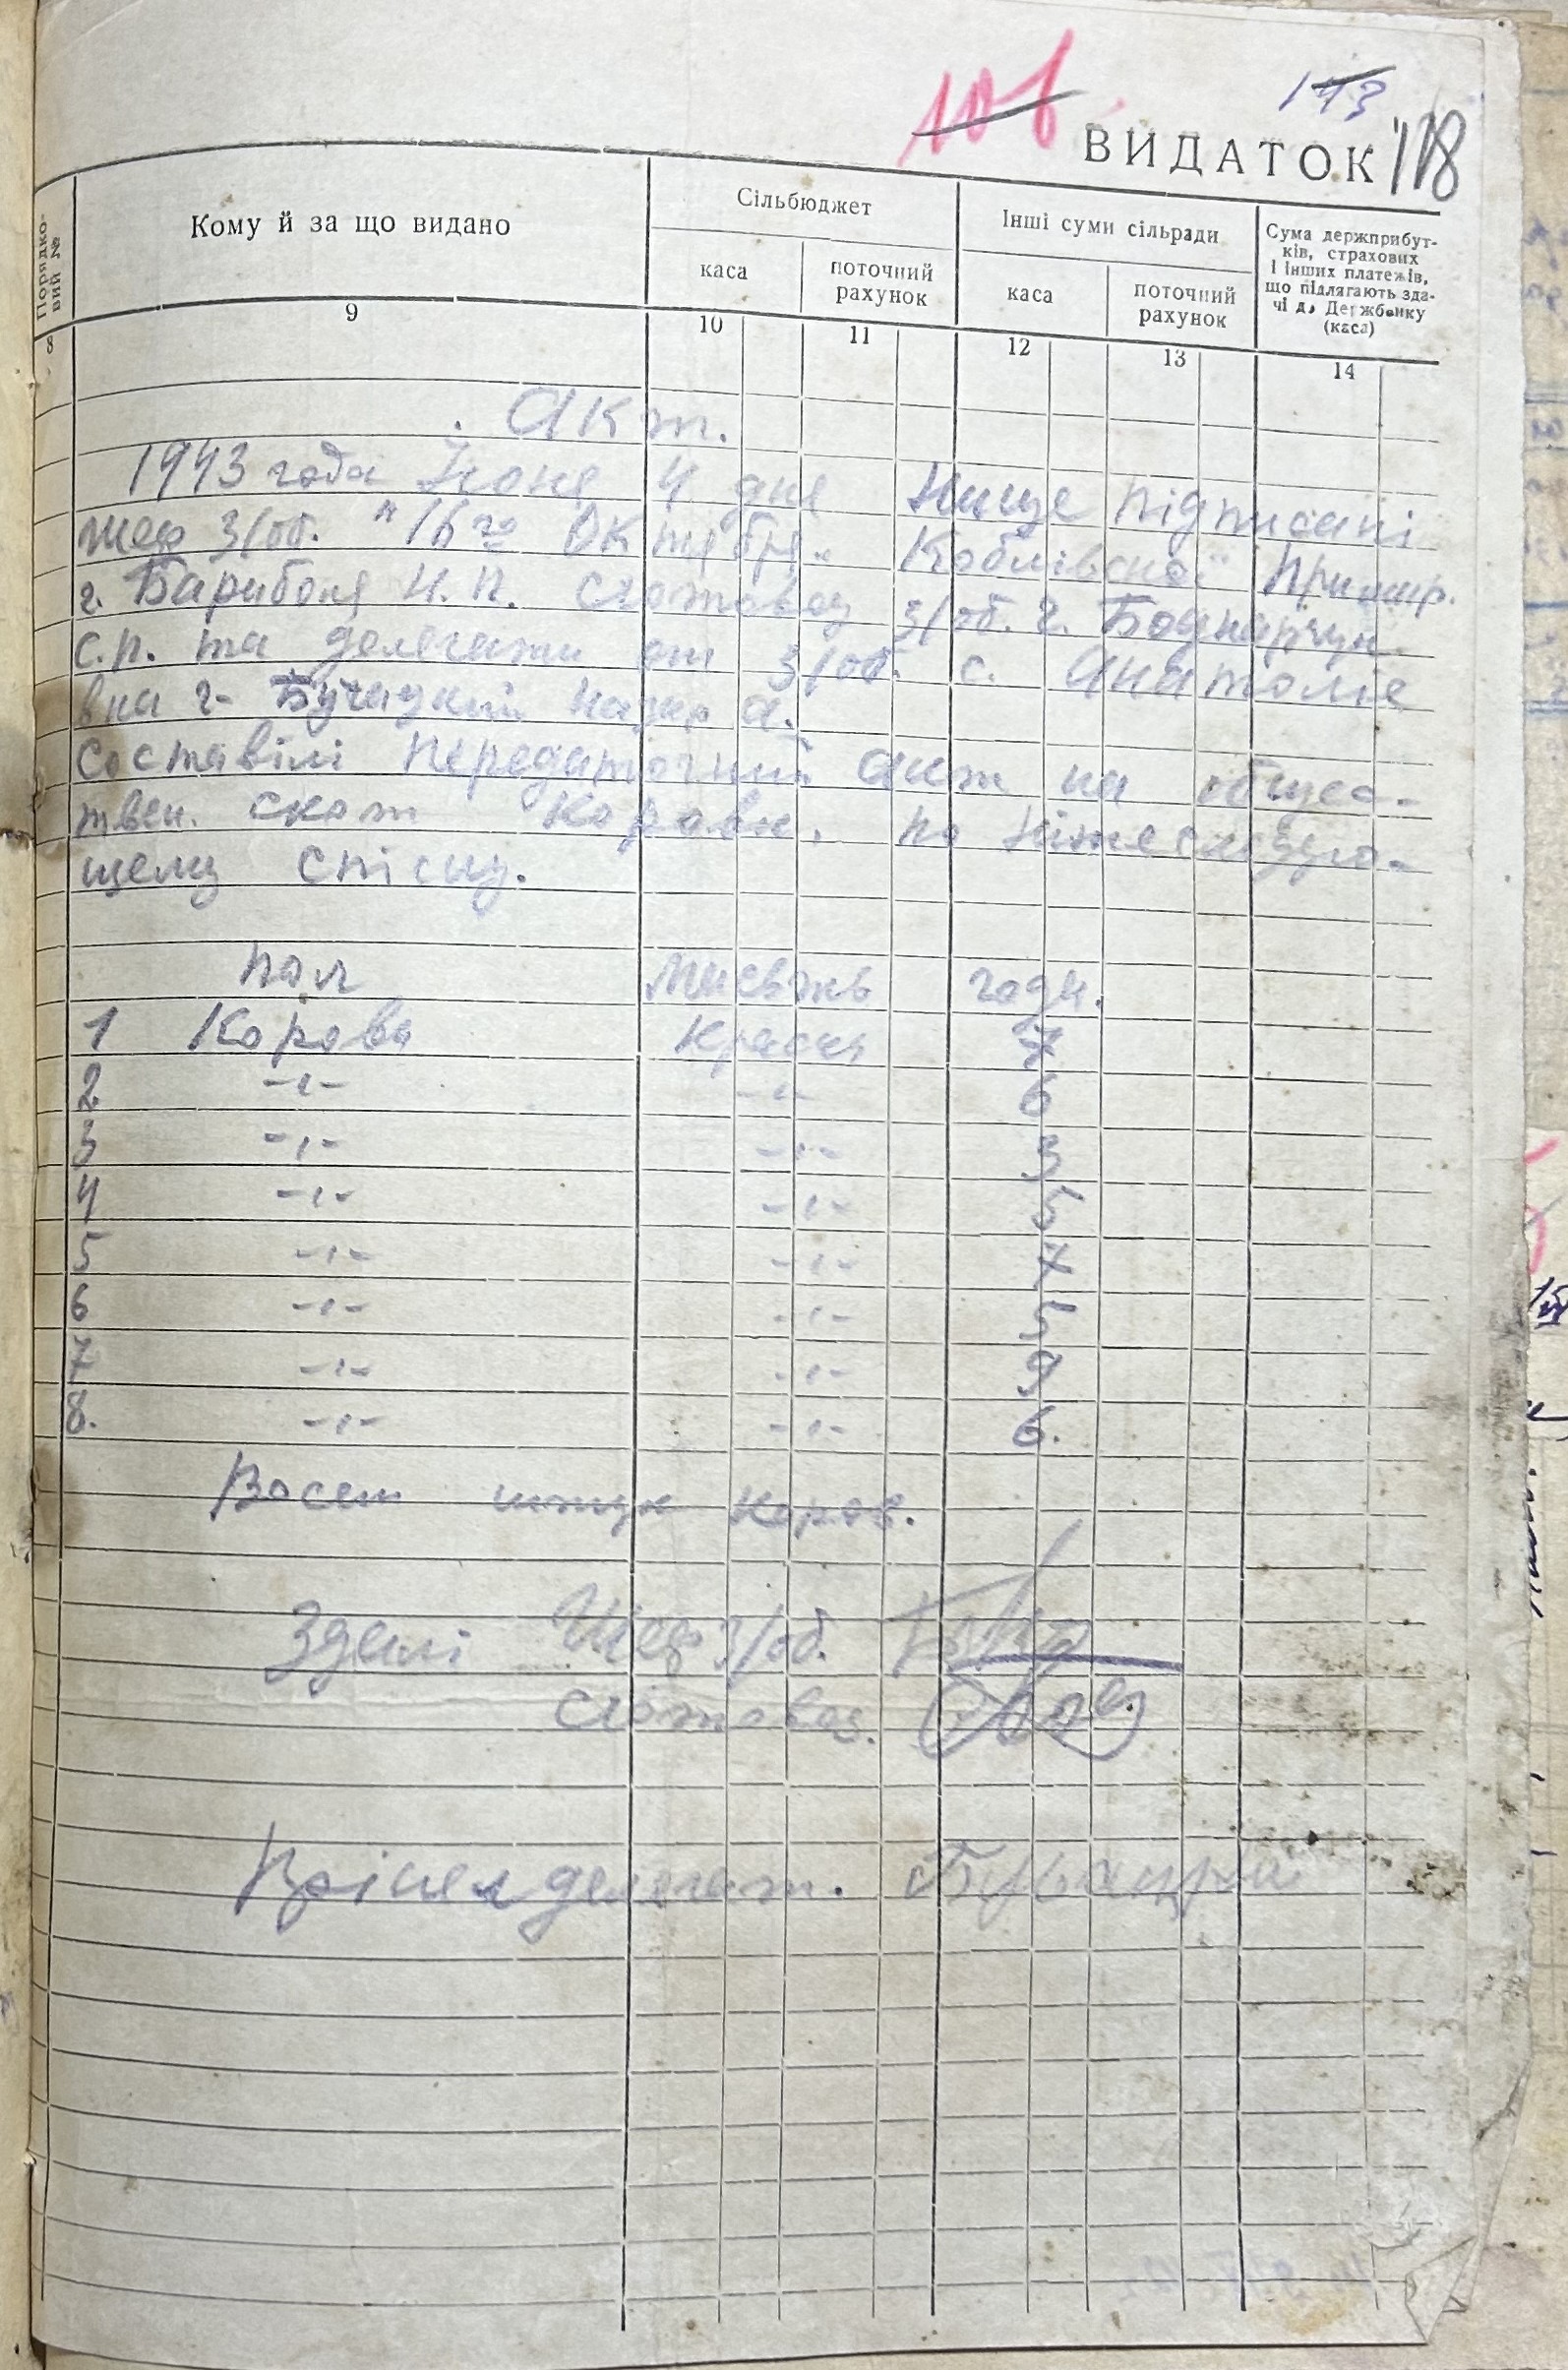 106
143
ВИДАТОК 118
Порядко-
вий №
Кому й за що видано
Сільбюджет
каса
поточний
рахунок
Інші суми сільради
каса
поточний
рахунок
Сума держприбут-
ків, страхових
і інших платежів,
що підлягають зда-
чі до Держбанку
(каса)
8 9 10 11 12 13 14
Акт.
1943 года Іюня 4 дня Нище підписані
шеф З/об. "16 го Октября" Коблівской Примар.
г. Бариболя И. П. скотовод З/об. г. Боднарчук
с.п. та делегати от З/об. с. Анатоліе
вка г- Бучацкий Назар А.
Составілі передаточний Акт на общес-
твен. скот Корови, по ніжеследую-
щему спіску.
Пол Масть годи.
1 Корова Красн 7
2. -"- -"- 6
3 -"- -"- 3
4 -"- -"- 5
5 -"- -"- 7
6 -"- -"- 5
7 -"- -"- 9
8. -"- -"- 6.
Восем штук коров.
Здалі Шеф З/об.
Скотовод.
Прінел делегат.